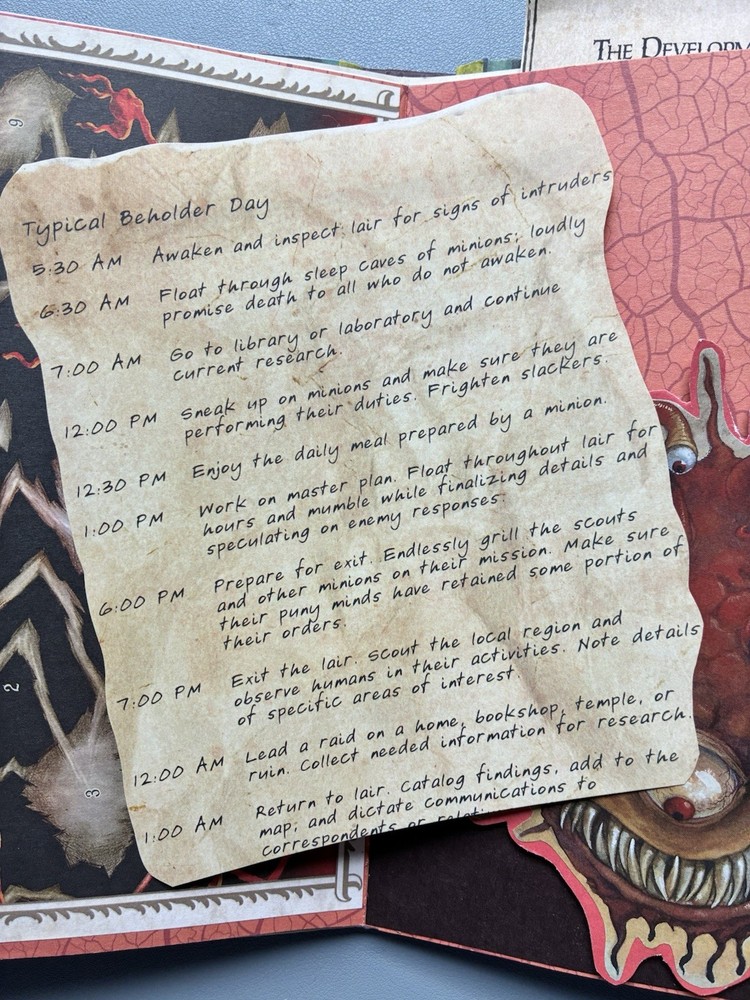 THE DEVELOPM
9
Typical Beholder Day
5:30 AM Awaken and inspect lair for signs of intruders
6:30 AM Float through sleep caves of minions; loudly
promise death to all who do not awaken.
7:00 AM Go to library or laboratory and continue
current research.
12:00 PM Sneak up on minions and make sure they are
performing their duties. Frighten slackers.
12:30 PM Enjoy the daily meal prepared by a minion.
1:00 PM Work on master plan. Float throughout lair for
hours and mumble while finalizing details and
speculating on enemy responses.
6:00 PM Prepare for exit. Endlessly grill the scouts
and other minions on their mission. Make sure
their puny minds have retained some portion of
their orders.
7:00 PM Exit the lair. Scout the local region and
observe humans in their activities. Note details
of specific areas of interest.
12:00 AM Lead a raid on a home, bookshop, temple, or
ruin. Collect needed information for research.
1:00 AM Return to lair. Catalog findings, add to the
map, and dictate communications to
correspondents or
2
3